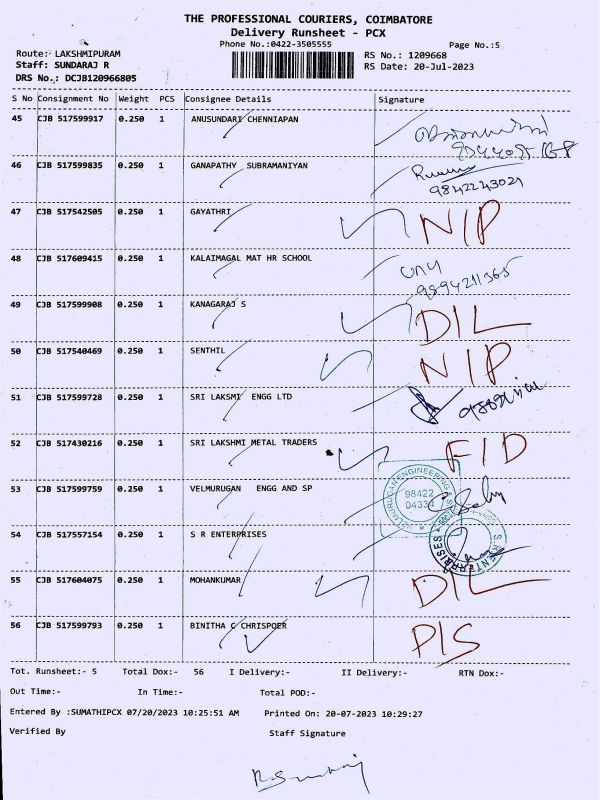 THE PROFESSIONAL COURIERS, COIMBATORE
Delivery Runsheet - PCX
Phone No.:0422-3505555
Page No.:5
Route: LAKSHMIPURAM
Staff: SUNDARAJ R
DRS No.: DCJB120966805
RS No.: 1209668
RS Date: 20-Jul-2023
S No Consignment No Weight PCS Consignee Details Signature
45 CJB 517599917 0.250 1 ANUSUNDARI CHENNIAPAN
46 CJB 517599835 0.250 1 GANAPATHY SUBRAMANIYAN
9842243021
47 CJB 517542505 0.250 1 GAYATHRI N/P
48 CJB 517609415 0.250 1 KALAIMAGAL MAT HR SCHOOL
9894211365
49 CJB 517599908 0.250 1 KANAGARAJ S D/L
50 CJB 517540469 0.250 1 SENTHIL N/P
51 CJB 517599728 0.250 1 SRI LAKSMI ENGG LTD
52 CJB 517430216 0.250 1 SRI LAKSHMI METAL TRADERS F/D
53 CJB 517599759 0.250 1 VELMURUGAN ENGG AND SP
VELMURUGAN ENGINEERING &
98422
04334
54 CJB 517557154 0.250 1 S R ENTERPRISES
S.R. ENTERPRISES
55 CJB 517604075 0.250 1 MOHANKUMAR D/L
56 CJB 517599793 0.250 1 BINITHA C CHRISPOER P/S
Tot. Runsheet:- 5 Total Dox:- 56 I Delivery:- II Delivery:- RTN Dox:-
Out Time:- In Time:- Total POD:-
Entered By :SUMATHIPCX 07/20/2023 10:25:51 AM Printed On: 20-07-2023 10:29:27
Verified By Staff Signature